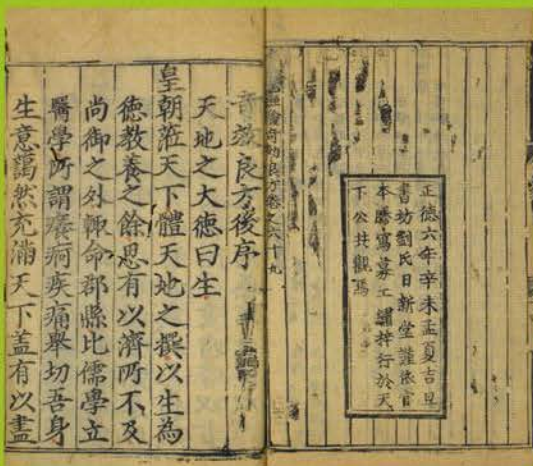 正德六年辛未孟夏吉旦
書坊劉氏日新堂謹依官
本謄寫募工繡梓行於天
下公共觀焉
驗奇効良方卷之六十九
奇效良方後序
天地之大德曰生
皇朝蒞天下體天地之撰以生為
德教養之餘思有以濟所不及
尚御之外輒命郡縣比儒學立
醫學所謂癢痾疾痛舉切吾身
生意藹然充滿天下盖有以盡